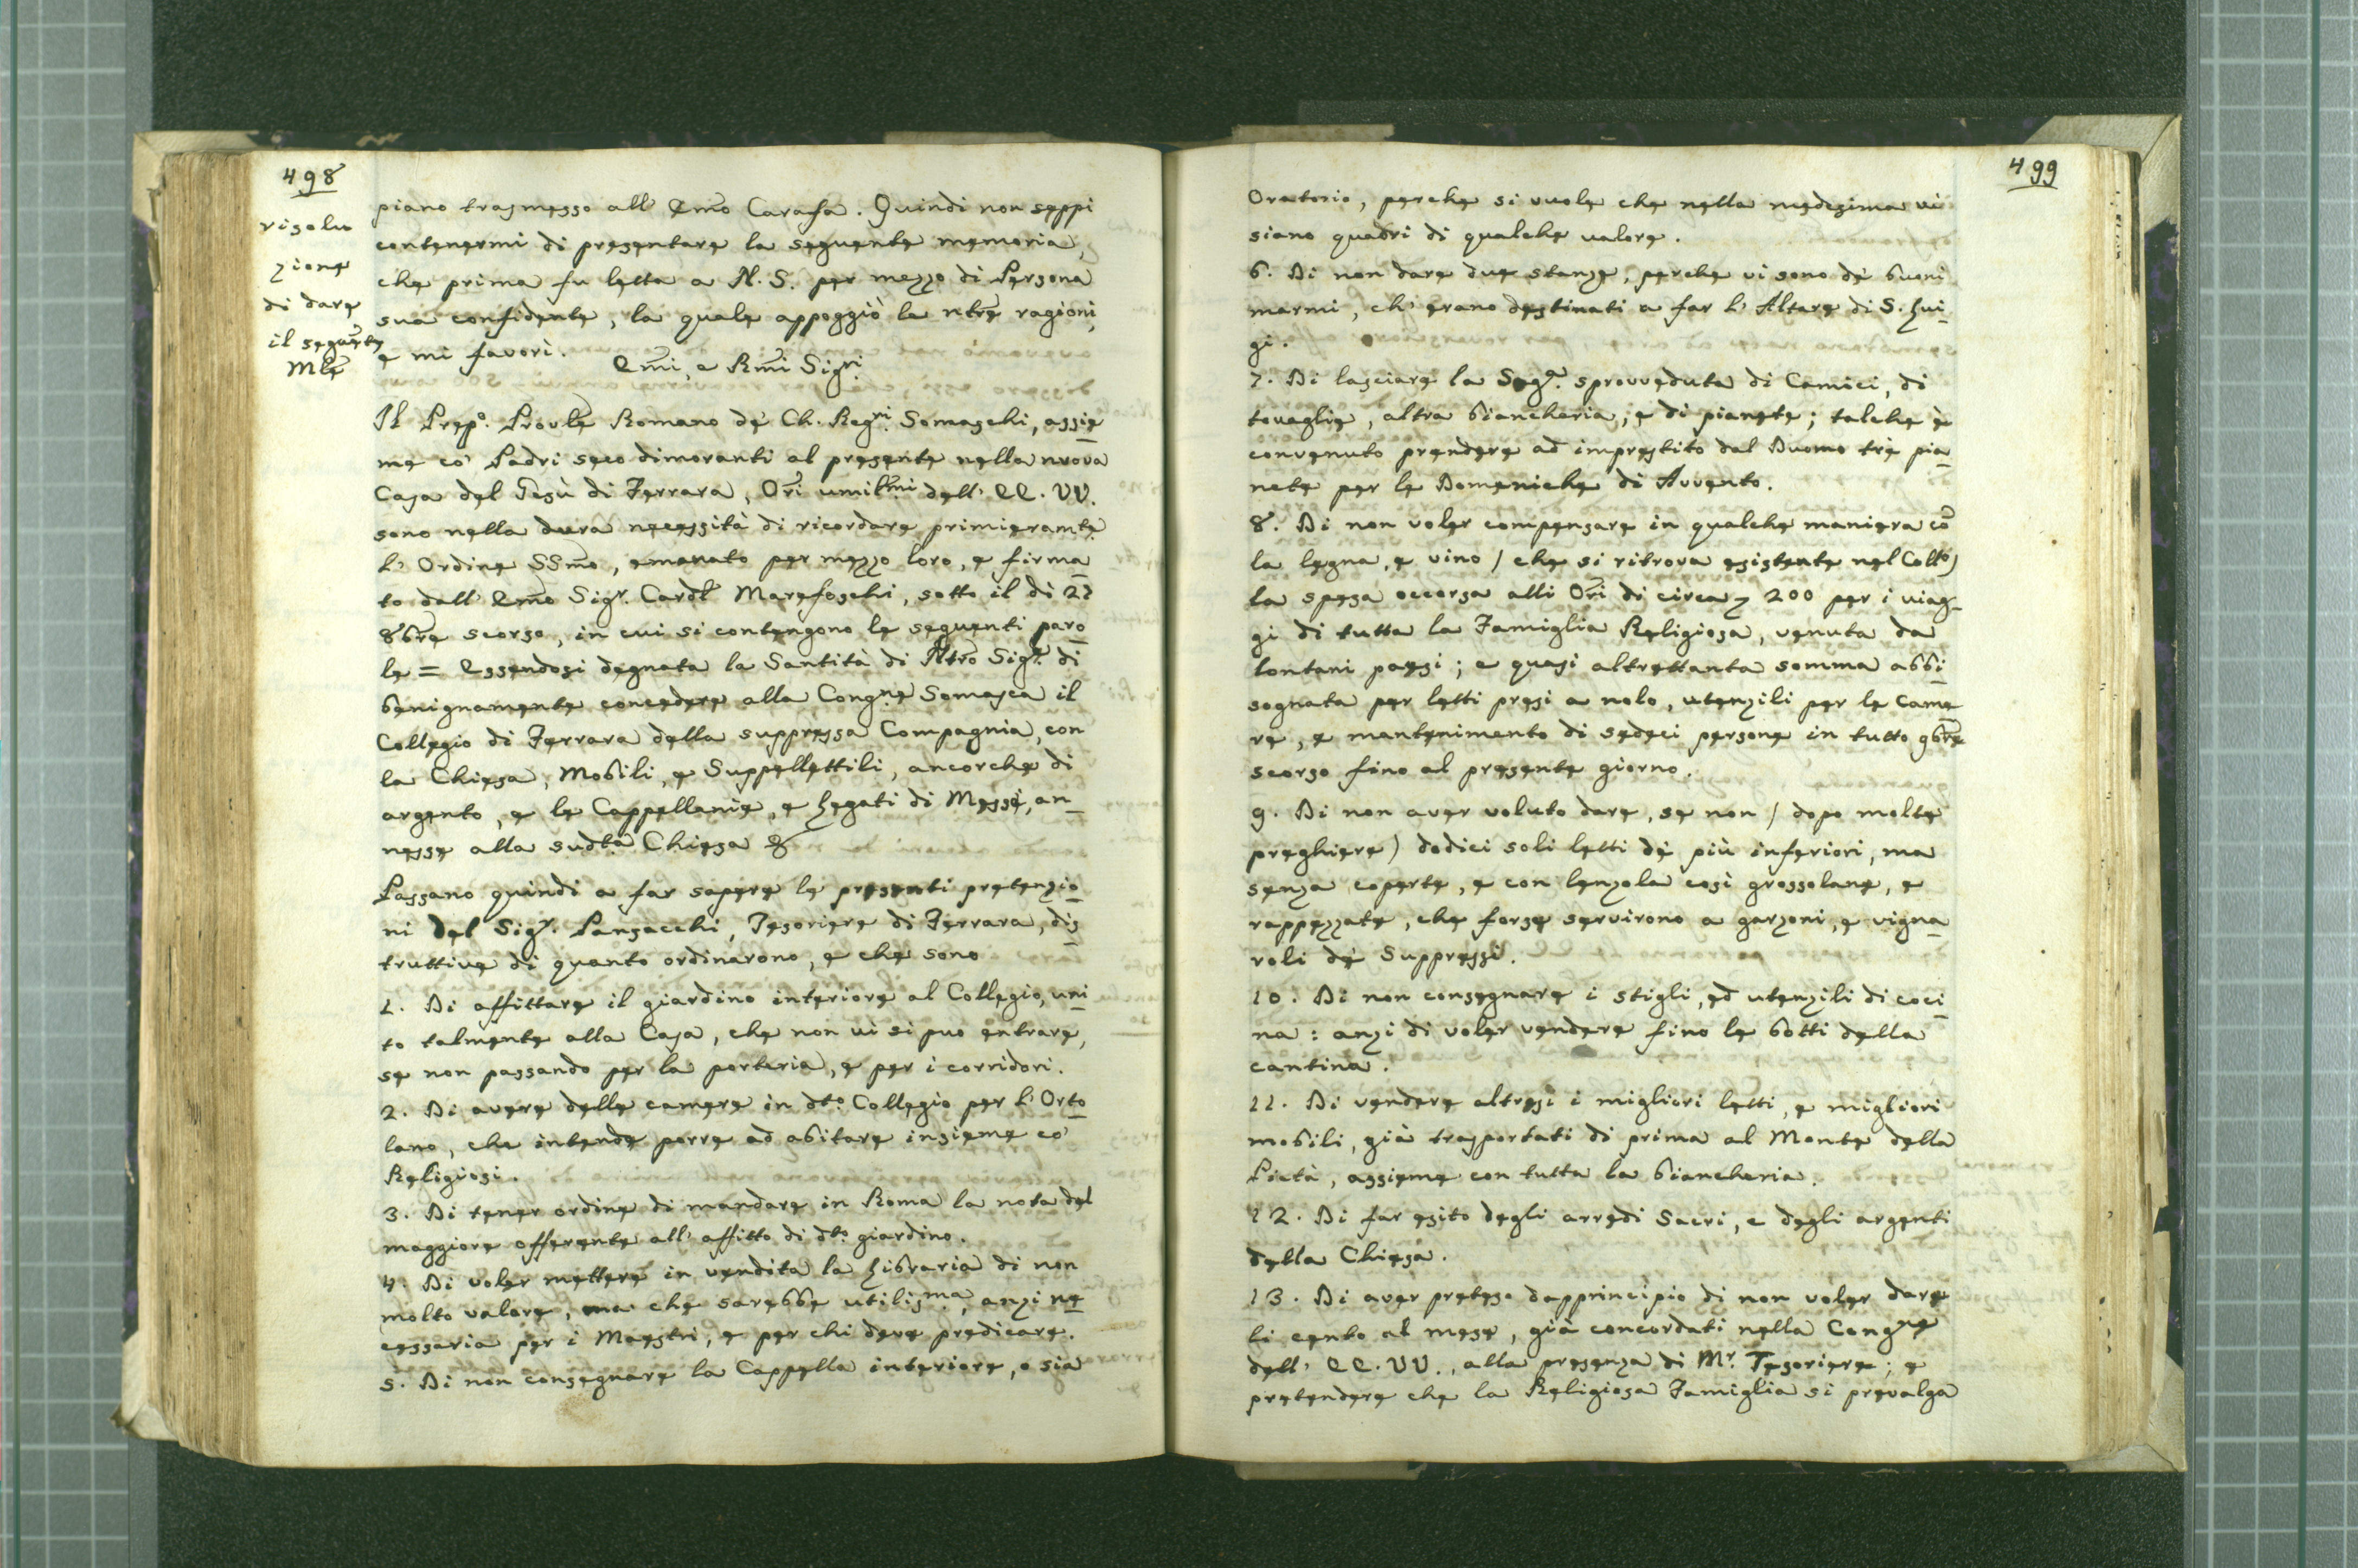 498
risolu
zione
di dare
il seguẽte
Mlẽ
piano trasmesso all' Emõ Carafa. Quindi non seppi
contenermi di presentare la seguente memoria,
che prima fu letta a N. S. per mezzo di Persona
sua confidente, la quale appoggiò le ntrẽ ragioni,
e mi favorì.
Emĩ, e Rmĩ Sigri
Il Prep.º Provlẽ Romano de' Ch. Regri Somaschi, assie
me co' Padri seco dimoranti al presente nella nuova
Casa del Gesù di Ferrara, Orĩ umilmi dell' EE. VV.
sono nella dura necessità di ricordare primieramtẽ
l' Ordine SSmõ, emanato per mezzo loro, e firma
to dall' Emõ Sigr. Cardl Marefoschi, sotto il dì 27
8brẽ scorso, in cui si contengono le seguenti paro
le = Essendosi degnata la Santità di Ntrõ Sigr. di
benignamente concedere alla Congne Somasca il
Collegio di Ferrara della suppressa Compagnia, con
la Chiesa, Mobili, e Suppellettili, ancorche di
argento, e le Cappellanie, e Legati di Messe, an
nesse alla sudtã Chiesa &
Passano quindi a far sapere le presenti pretenzio
ni del Sigr. Pansacchi, Tesoriere di Ferrara, dis
truttive di quanto ordinarono, e che sono
1. Di affittare il giardino interiore al Collegio, uni
to talmente alla Casa, che non vi si puo entrare,
se non passando per la porteria, e per i corridori.
2. Di avere delle camere in dto. Collegio per l' Orto
lano, che intende porre ad abitare insieme co'
Religiosi.
3. Di tener ordine di mandare in Roma la nota del
maggiore offerente all' affitto di dto. giardino.
4. Di voler mettere in vendita la Libraria di non
molto valore, ma che sarebbe utilisma, anzi ne
cessaria per i Maestri, e per chi deve predicare.
5. Di non consegnare la Cappella interiore, o sia
499
Oratorio, perche si vuole che nella medesima vi
siano quadri di qualche valore.
6. Di non dare due stanze, perche vi sono de' buoni
marmi, ch' erano destinati a far l' Altare di S. Lui
gi.
7. Di lasciare la Sagr. sprovveduta di Camici, di
tovaglie, altra biancheria, e di pianete; talche è
convenuto prendere ad imprestito dal Duomo trè pia
nete per le Domeniche di Avvento.
8. Di non voler compensare in qualche maniera cõ
la legna, e vino / che si ritrova esistente nel Collo)
la spesa occorsa alli Orĩ di circa 200 per i viag
gi di tutta la Famiglia Religiosa, venuta da
lontani paesi; e quasi altrettanta somma abbi
sognata per letti presi a nolo, utenzili per le came
re, e mantenimento di sedeci persone in tutto 9brẽ
scorso fino al presente giorno.
9. Di non aver voluto dare, se non / dopo molte
preghiere) dodici soli letti de' più inferiori, ma
senza coperte, e con lenzola così grossolane, e
rappezzate, che forse servirono a garzoni, e vigna
roli de' Suppressi.
10. Di non consegnare i stigli, ed utenzili di coci
na: anzi di voler vendere fino le botti della
cantina.
11. Di vendere altresì i migliori letti, e migliori
mobili, già trasportati di prima al Monte della
Pietà, assieme con tutta la biancheria.
12. Di far esito degli arredi Sacri, e degli argenti
della Chiesa.
13. Di aver preteso dapprincipio di non voler dare
li cento al mese, già concordati nella Congne
dell' EE. VV., alla presenza di Mr. Tesoriere; e
pretendere che la Religiosa Famiglia si prevalga